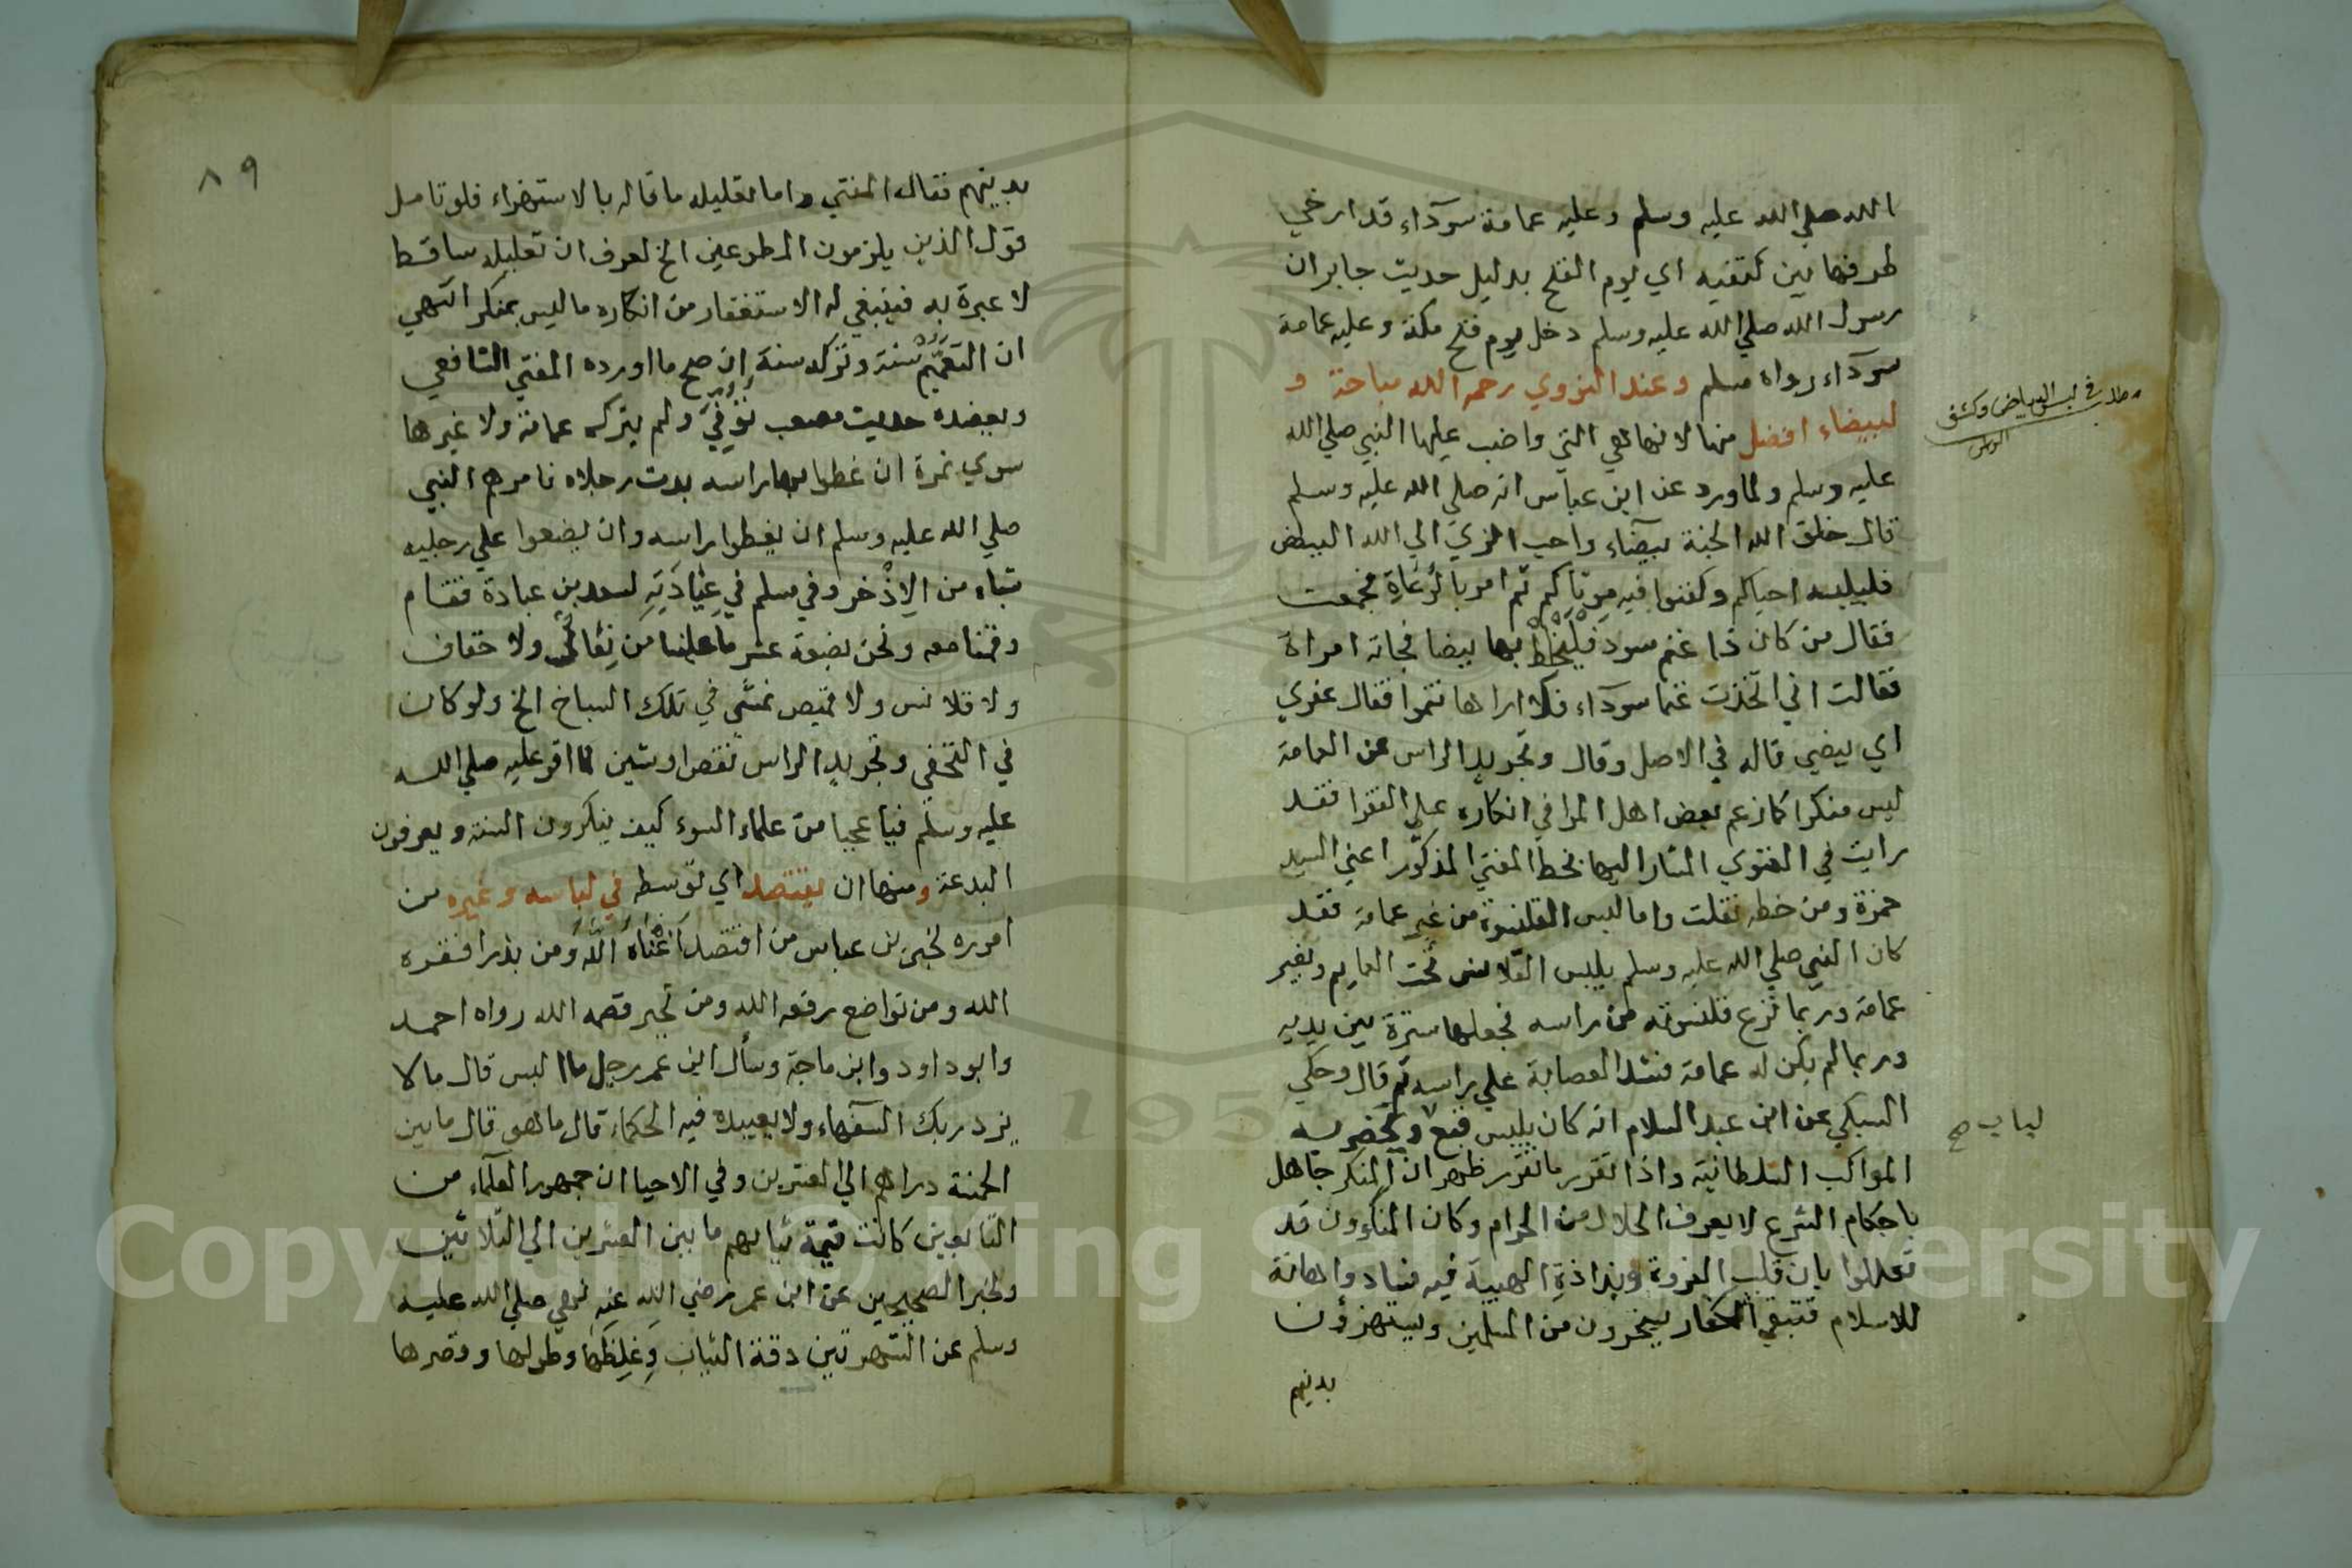 الله صلي الله عليه وسلم وعليه عمامة سودآء قد ارخي
طرفها بين كتفيه اي يوم الفتح بدليل حديث جابر ان
رسول الله صلي الله عليه وسلم دخل يوم فتح مكة وعليه عمامة
سودآء رواه مسلم وعند النووي رحمه الله مباحة و
لبيضاء افضل منها لانها هي التي واضب عليها النبي صلي الله
عليه وسلم ولما ورد عن ابن عباس انه صلي الله عليه وسلم
قال خلق الله الجنة بيضآء واحب الزي الي الله البياض
فليلبسه احياكم وكفنوا فيه موتاكم ثم امر بالرعاة فجمعت
فقال من كان ذا غنم سود فليخلط بها بيضا فجاته امراة
فقالت اني اتخذت غنما سودآء فلا اراها تنموا فقال عفري
اي بيضي قاله في الاصل وقال وتجريد الراس عن العمامة
ليس منكرا كما زعم بعض اهل المرا في انكاره علي الفقرا فقد
رايت في الفتوي المشار اليها بخط المفتي المذكور اعني السيد
حمزة ومن خطه نقلت واما لبس القلنسوة من غير عمامة فقد
كان النبي صلي الله عليه وسلم يلبس القلانس تحت العمايم وبغير
عمامة وربما نزع قلنسوته من راسه فجعلها سترة بين يديه
وربما لم يكن له عمامة فشد العصابة علي راسه ثم قال وحكي
السبكي عن ابن عبد السلام انه كان يلبس قبع ويحضر به
المواكب السلطانية واذا تقرر ما تقرر ظهر ان المنكر جاهل
باحكام الشرع لا يعرف الحلال من الحرام وكان المنكرون قد
تعللوا بان قلب الفروة وبذاذة الهيية فيه فساد واهانة
للاسلام فتبقي الكفار يسخرون من المسلمين ويستهزؤن
بدينهم
مطلب في لبس البياض وكشف
الراس
لباب صح
٨٩
بدينهم فقال المفتي واما تعليله ما قاله بالاستهزاء فلو تامل
قول الذين يلزمون المطوعين الخ لعرف ان تعليله ساقط
لا عبرة به فينبغي له الاستغفار من انكاره ما ليس بمنكر انتهي
ان التعمم سنة وتركه سنة ان صح ما اورده المفتي الشافعي
ويعضده حديث مصعب توفي ولم يترك عمامة ولا غيرها
سوي نمرة ان غطوا بها راسه بدت رجلاه فامرهم النبي
صلي الله عليه وسلم ان يغطوا راسه وان يضعوا علي رجليه
شياء من الاذخر وفي مسلم في عيادته لسعد بن عبادة فقام
وقمنا معه ونحن بضعة عشر ما علينا من نعال ولا خفاف
ولا قلانس ولا قميص نمشي في تلك السباخ الخ ولو كان
في التحفي وتجريد الراس نقص او شين لما اقر عليه صلي الله
عليه وسلم فيا عجبا من علماء السوء كيف ينكرون السنة ويعرفون
البدعة ومنها ان يقتصد اي توسط في لباسه وغيره من
اموره لخبر بن عباس من اقتصد اغناه الله ومن بذر افقره
الله ومن تواضع رفعه الله ومن تجبر قصمه الله رواه احمد
وابو داود وابن ماجة وسأل ابن عمر رجل ما البس قال ما لا
يزدريك السفهاء ولا يعيبك فيه الحكماء قال ما هو قال ما بين
الخمسة دراهم الي العشرين وفي الاحيا ان جمهور العلماء من
التابعين كانت قيمة ثيابهم ما بين العشرين الي الثلاثين
ولخبر الصحيحين عن ابن عمر رضي الله عنه نهي صلي الله عليه
وسلم عن الشهرتين دقة الثياب وغلظها وطولها وقصرها